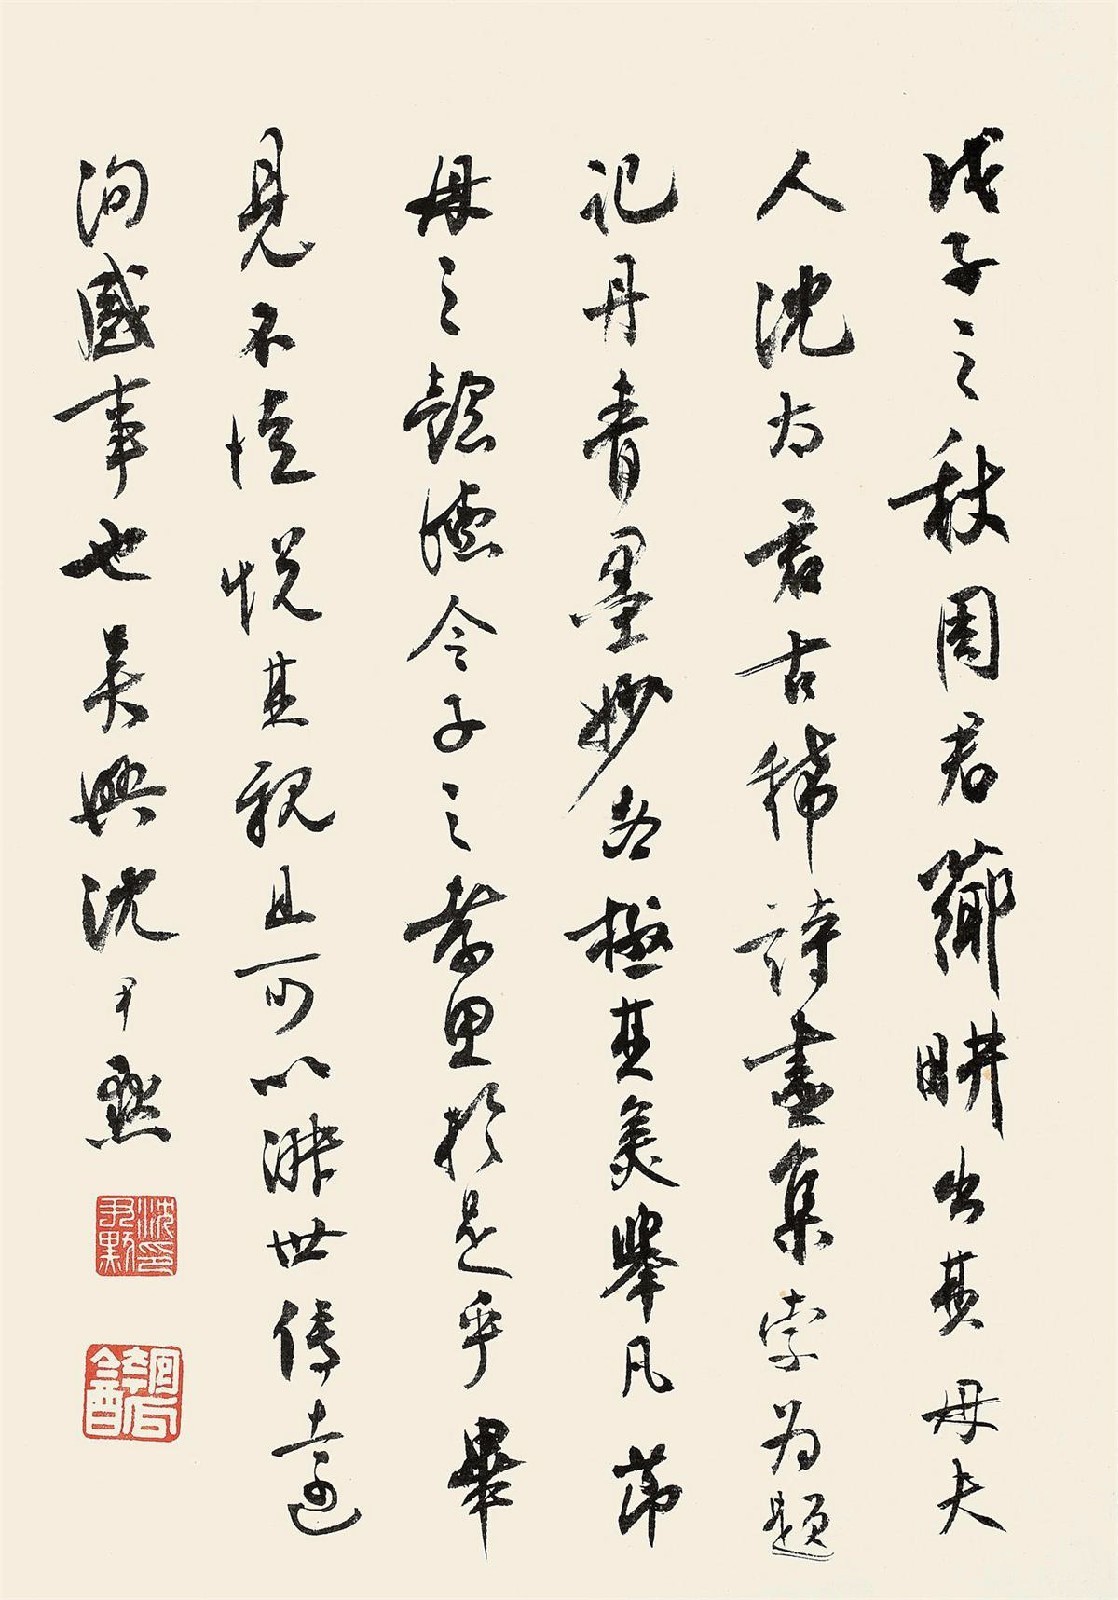 戊子之秋周君薌畊出其母夫
人沈太君古稀詩畫集索为題
記丹青墨妙各極其美舉凡節
母之懿德令子之孝思於是乎畢
見不徒悦其親且可以淑世傳遠
洵盛事也吴興沈尹默
沈尹默印